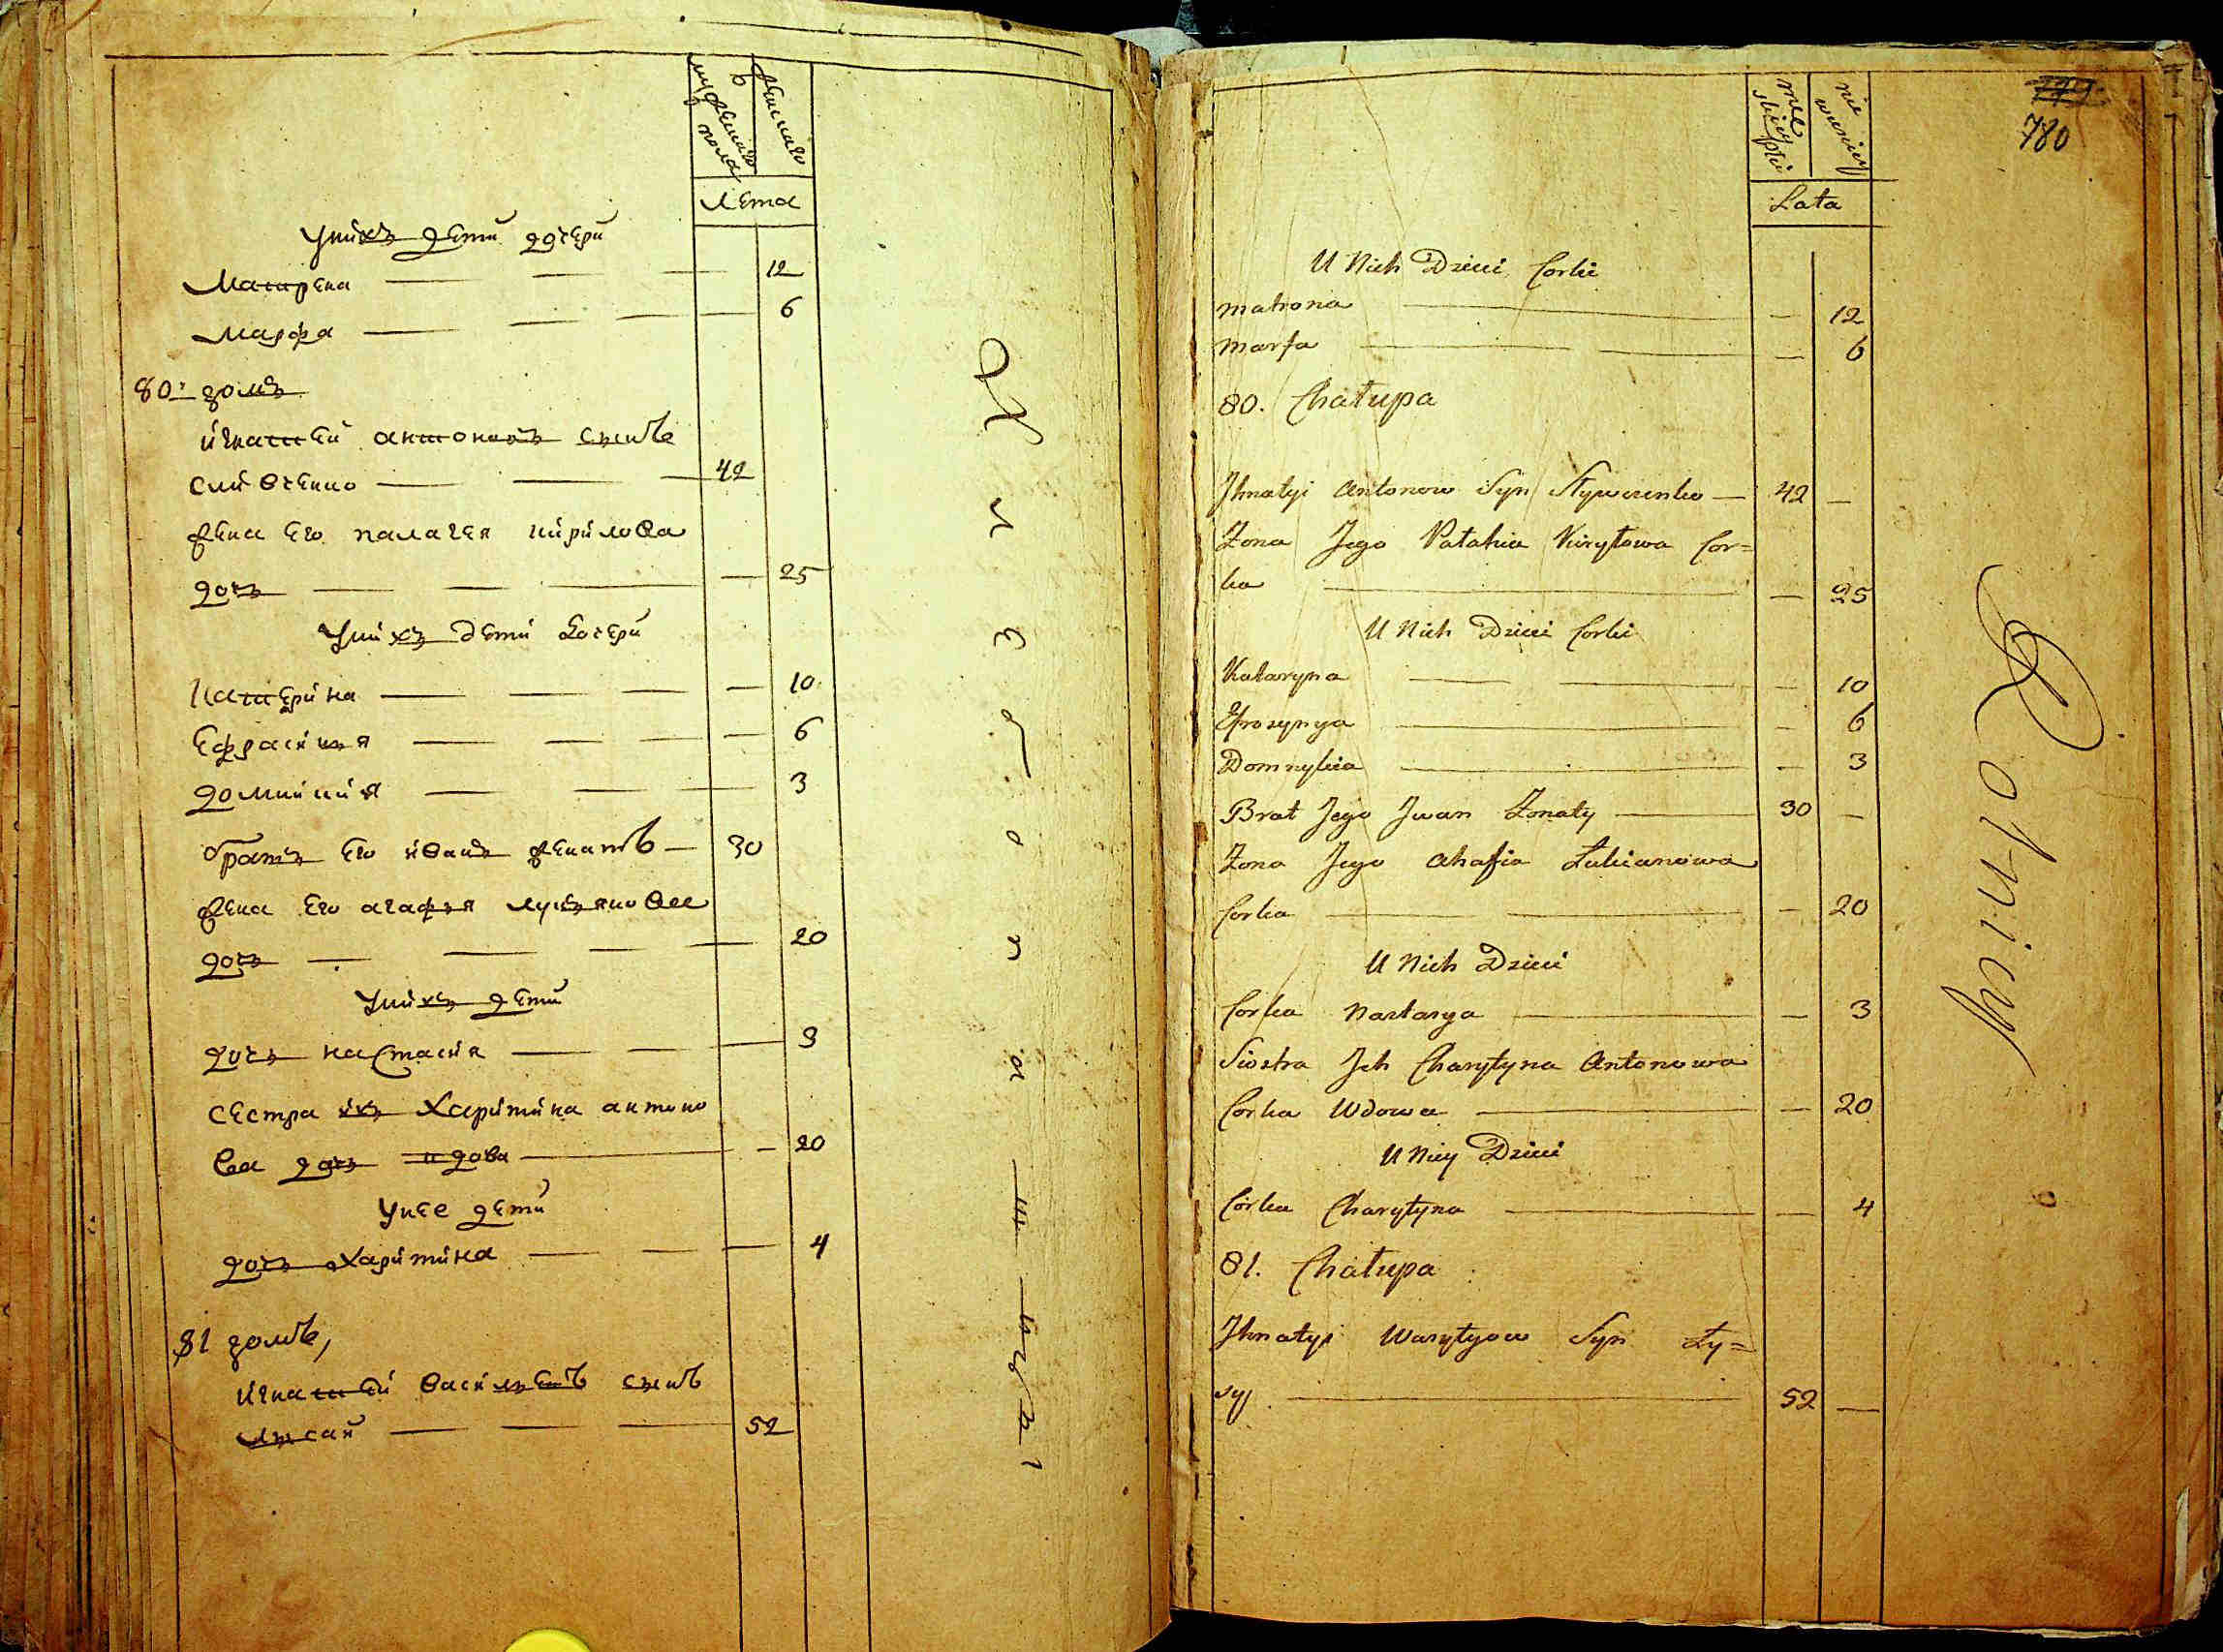 мужеска пола
женска
Лета
У них дети дочери
Матрена 12
Марфа 6
80: домъ
игнатей антоновъ сынъ
сливченко 42
жена его палагея кирилова
дочь 25
У них дети дочери
Катерина 10
Ефрасиния 6
домникия 3
братъ его иванъ женатъ 30
жена его агафья лукьянова
дочь 20
У них дети
дочь настасия 3
сестра их Харитина антоно
ва дочь вдова 20
У нее дети
дочь Харитина 4
81 домъ,
игнатей васильевъ сынъ
лысай 52
779
780
Lata
U Nich Dzieci Corki
Matrona — 12
Marfa — 6
80. Chałupa
Jhnatyi Antonow Syn Slywczenko 42 —
Żona Jego Palahia Kiryłowa Cor=
ka — 25
U Nich Dzieci Corki
Kataryna — 10
Efrosynya — 6
Domnykia — 3
Brat Jego Jwan Żonaty 30 —
Żona Jego Ahafia Łukianowa
Corka — 20
U Nich Dzieci
Corka Nastasya — 3
Siostra Jch Charytyna Antonowa
Corka Wdowa — 20
U Niey Dzieci
Corka Charytyna — 4
81. Chałupa
Jhnatyi Wasylyow Syn Ły=
syj 52 —
Rolnicy